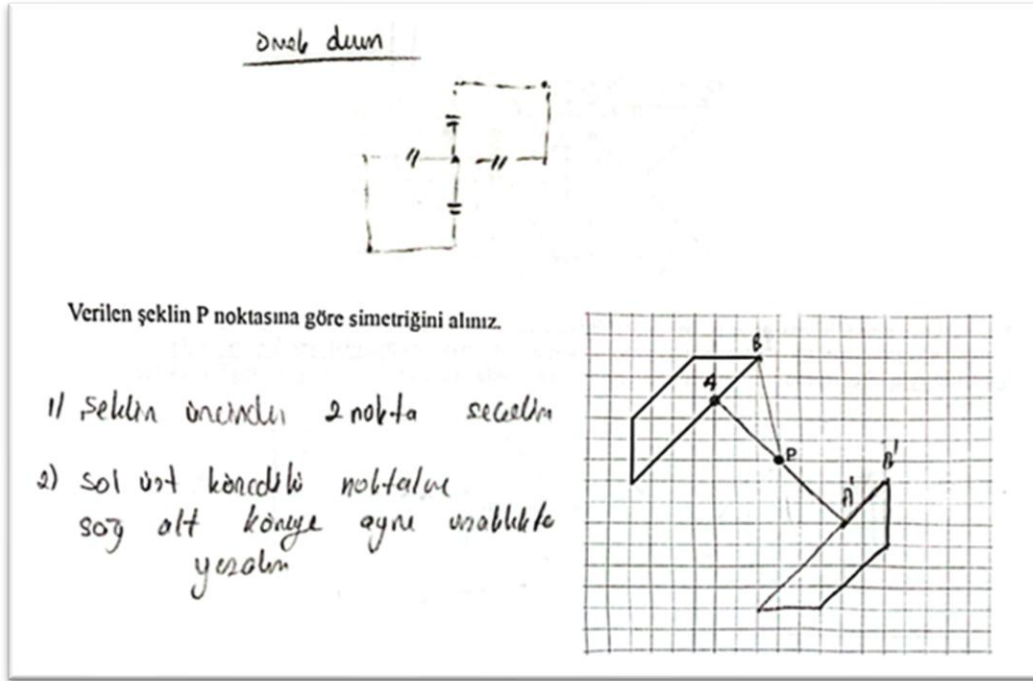 Örnek durum
Verilen şeklin P noktasına göre simetriğini alınız.
1) Şeklin üzerinden 2 nokta seçelim
2) sol üst köşedeki noktaları
sağ alt köşeye aynı uzaklıkla
yazalım
B
A
P
B'
A'